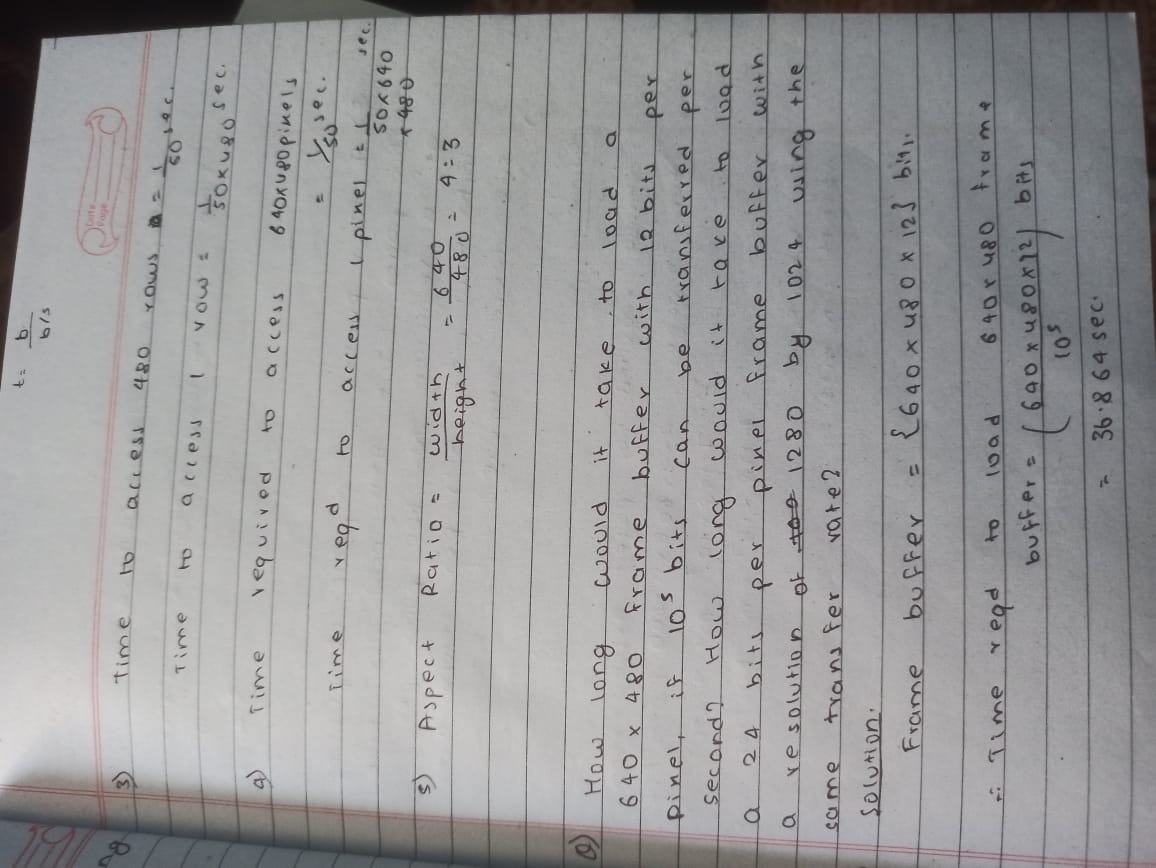 t = b
b/s
Date
Page
3) Time to access 480 rows = 1/50 sec.
Time to access 1 row = 1/50x480 sec.
4) Time required to access 640x480 pixels
= 1/50 sec.
Time reqd to access 1 pixel = 1/50x640x480 sec.
5) Aspect Ratio = width/height = 640/480 = 4:3
Q) How long would it take to load a
640 x 480 frame buffer with 12 bits per
pixel, if 10⁵ bits can be transferred per
second? How long would it take to load
a 24 bits per pixel frame buffer with
a resolution of 1280 by 1024 using the
same transfer rate?
Solution.
Frame buffer = {640 x 480 x 12} bits.
∴ Time reqd to load 640x480 frame
buffer = (640x480x12/10⁵) bits
= 36.864 sec.